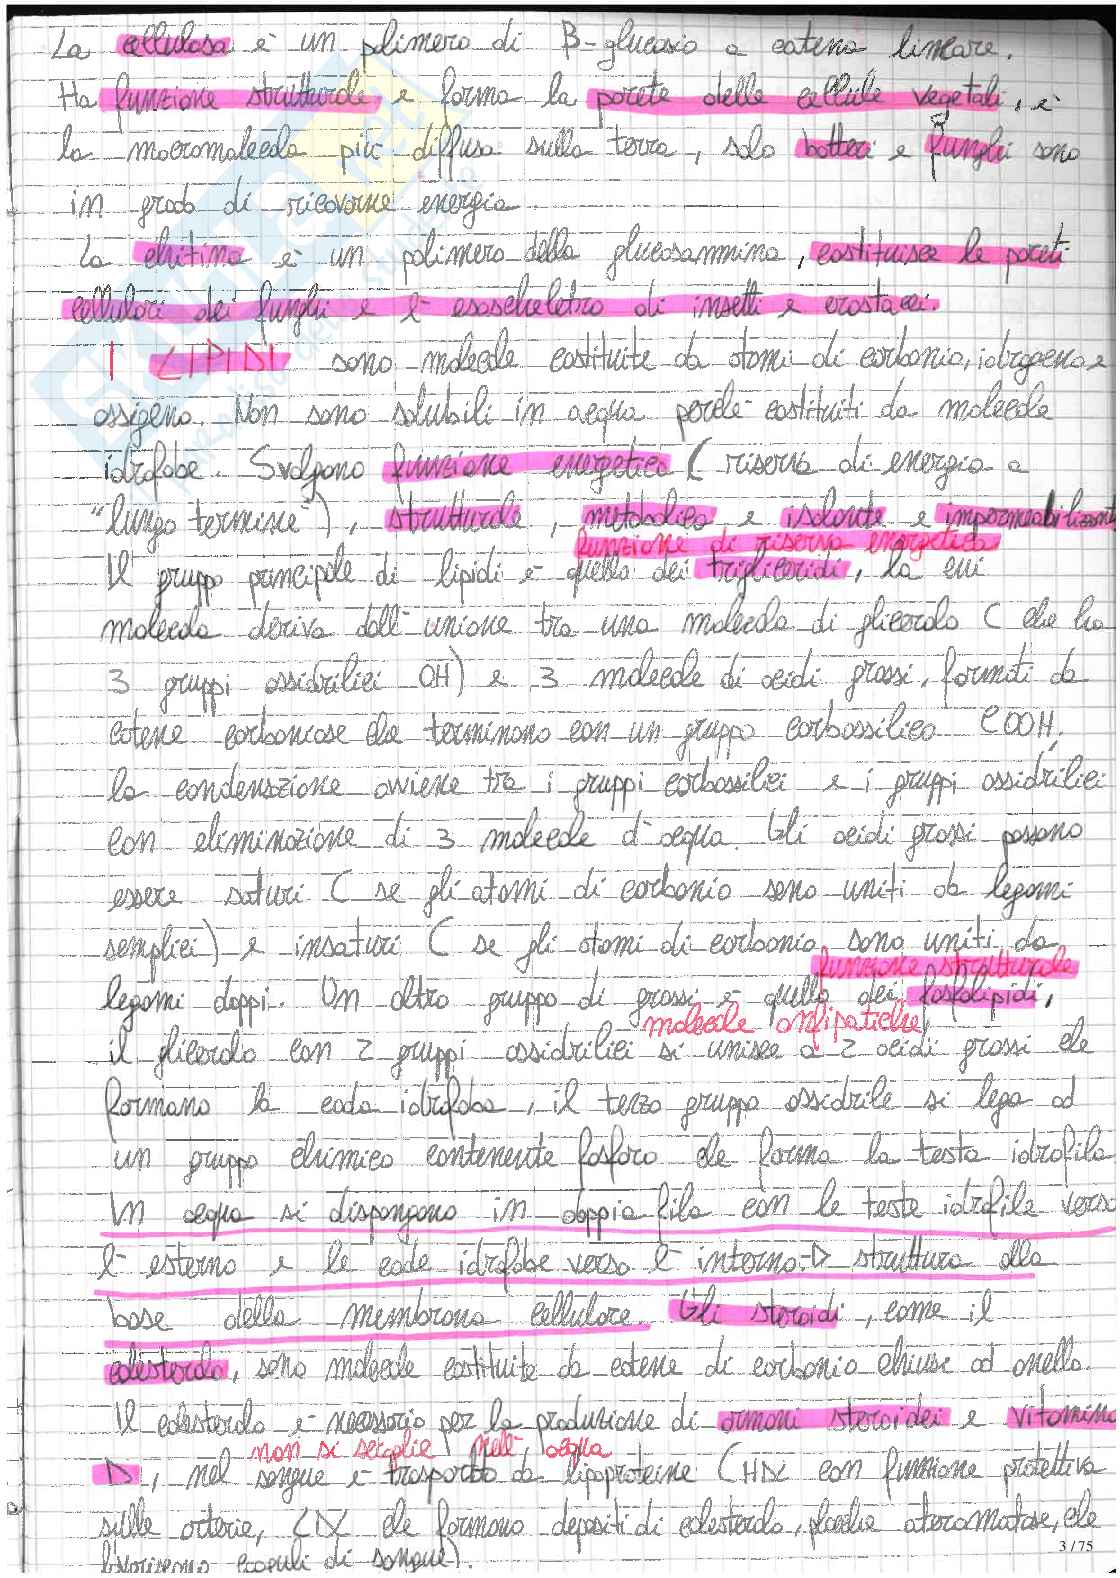 La cellulosa è un polimero di β-glucosio a catena lineare.
Ha funzione strutturale e forma la parete delle cellule vegetali, è
la macromolecola più diffusa sulla terra, solo batteri e funghi sono
in grado di ricavarne energia.
La chitina è un polimero della glucosammina, costituisce le pareti
cellulari dei funghi e l'esoscheletro di insetti e crostacei.
I LIPIDI sono molecole costituite da atomi di carbonio, idrogeno e
ossigeno. Non sono solubili in acqua perché costituiti da molecole
idrofobe. Svolgono funzione energetica (riserva di energia a
"lungo termine"), strutturale, metabolica e isolante e impermeabilizzante
funzione di riserva energetica
Il gruppo principale di lipidi è quello dei trigliceridi, la cui
molecola deriva dall'unione tra una molecola di glicerolo (che ha
3 gruppi ossidrilici OH) e 3 molecole di acidi grassi, formati da
catene carboniose che terminano con un gruppo carbossilico COOH.
la condensazione avviene tra i gruppi carbossilici e i gruppi ossidrilici
con eliminazione di 3 molecole d'acqua. Gli acidi grassi possono
essere saturi (se gli atomi di carbonio sono uniti da legami
semplici) e insaturi (se gli atomi di carbonio sono uniti da
funzione strutturale
legami doppi. Un altro gruppo di grassi è quello dei fosfolipidi,
molecole anfipatiche
il glicerolo con 2 gruppi ossidrilici si unisce a 2 acidi grassi che
formano la coda idrofoba, il terzo gruppo ossidrile si lega ad
un gruppo chimico contenente fosforo che forma la testa idrofila
In acqua si dispongono in doppia fila con le teste idrofile verso
l'esterno e le code idrofobe verso l'interno → struttura alla
base della membrana cellulare. Gli steroidi, come il
colesterolo, sono molecole costituite da catene di carbonio chiuse ad anello.
Il colesterolo è necessario per la produzione di ormoni steroidei e vitamina
non si scioglie nell'acqua
D, nel sangue è trasportato da lipoproteine (HDL con funzione protettiva
sulle arterie, LDL che formano depositi di colesterolo, placche ateromatose, che
favoriscono coaguli di sangue).
3 / 75